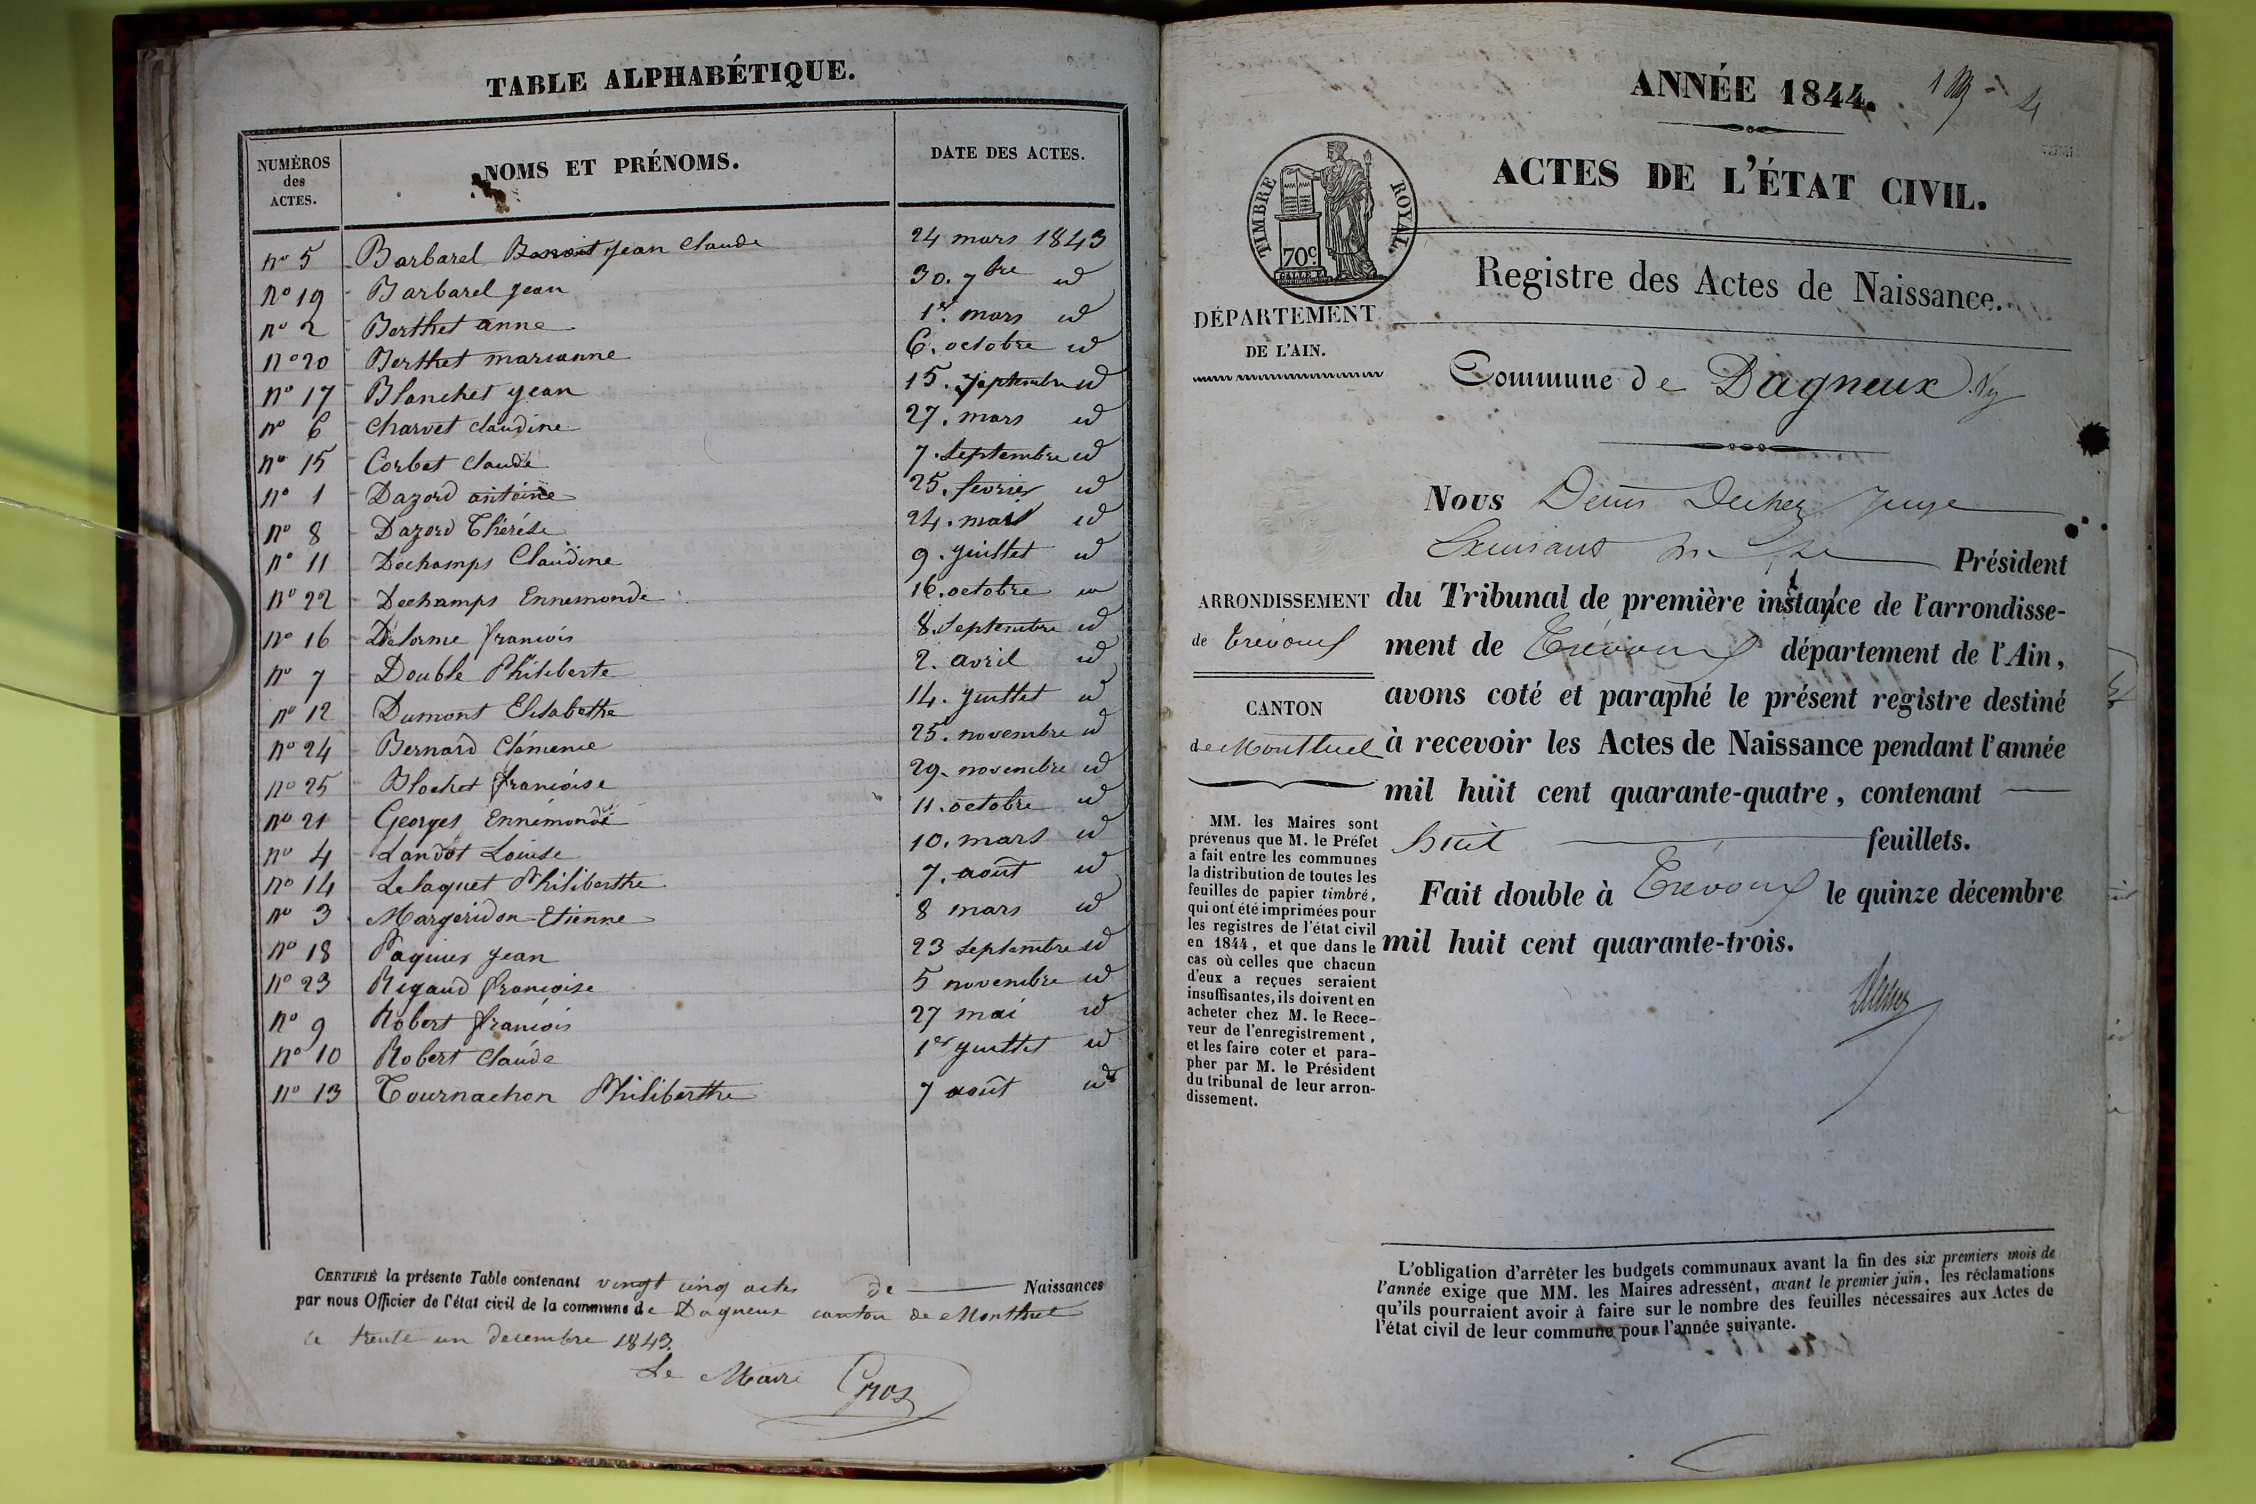 TABLE ALPHABÉTIQUE.
NUMÉROS
des
ACTES.
NOMS ET PRÉNOMS.
DATE DES ACTES.
n° 5 Barbarel Benoit jean Claude 24 mars 1843
n° 19 Barbarel jean 30. 7bre id
n° 2 Berthet anne 1er mars id
n° 20 Berthet marianne 6. octobre id
n° 17 Blanchet jean 15. Septembre id
n° 6 Charvet claudine 27. mars id
n° 15 Corbet claude 7. Septembre id
n° 1 Dazord antoine 25. fevrier id
n° 8 Dazord Thérése 24. mai id
n° 11 Dechamps Claudine 9. juillet id
n° 22 Dechamps Ennemonde 16. octobre id
n° 16 Delorme francois 8. Septembre id
n° 7 Double Philiberte 2. avril id
n° 12 Dumont Elisabethe 14. juillet id
n° 24 Bernard Clémence 25. novembre id
n° 25 Blochet françoise 29. novembre id
n° 21 Georges Ennémonde 11. octobre id
n° 4 Landot Louise 10. mars id
n° 14 Lelaquet Philiberthe 7. août id
n° 3 Margeridon Etienne 8 mars id
n° 18 Paquier jean 23 Septembre id
n° 23 Rigaud françoise 5 novembre id
n° 9 Robert françois 27 mai id
n° 10 Robert claude 1er juillet id
n° 13 Tournachon Philiberthe 7 août id
CERTIFIÉ la présente Table contenant vingt cinq actes de Naissances
par nous Officier de l'état civil de la commune de Dagneux canton de Montluel
le trente un decembre 1843.
Le Maire Gros
ANNÉE 1844.
ACTES DE L'ÉTAT CIVIL.
TIMBRE ROYAL.
70c.
Registre des Actes de Naissance.
DÉPARTEMENT
DE L'AIN.
Commune de Dagneux
Nous Denis Ducher Juge
Président
ARRONDISSEMENT
de Trévoux
CANTON
de Montluel
du Tribunal de première instance de l'arrondisse-
ment de Trévoux département de l'Ain,
avons coté et paraphé le présent registre destiné
à recevoir les Actes de Naissance pendant l'année
mil huit cent quarante-quatre, contenant
huit feuillets.
Fait double à Trévoux le quinze décembre
mil huit cent quarante-trois.
MM. les Maires sont
prévenus que M. le Préfet
a fait entre les communes
la distribution de toutes les
feuilles de papier timbré,
qui ont été imprimées pour
les registres de l'état civil
en 1844, et que dans le
cas où celles que chacun
d'eux a reçues seraient
insuffisantes, ils doivent en
acheter chez M. le Rece-
veur de l'enregistrement,
et les faire coter et para-
pher par M. le Président
du tribunal de leur arron-
dissement.
L'obligation d'arrêter les budgets communaux avant la fin des six premiers mois de
l'année exige que MM. les Maires adressent, avant le premier juin, les réclamations
qu'ils pourraient avoir à faire sur le nombre des feuilles nécessaires aux Actes de
l'état civil de leur commune pour l'année suivante.